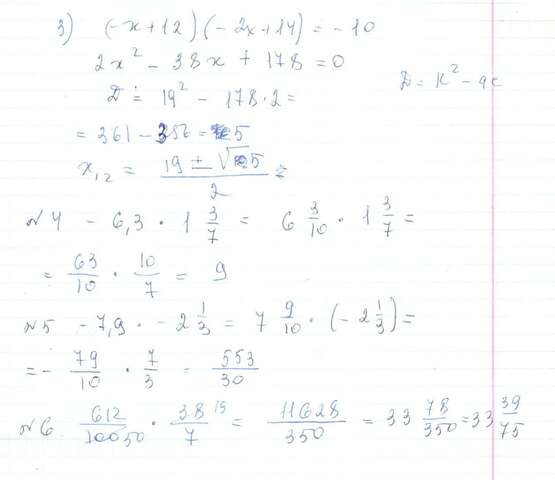 3) (-x+12)(-2x+14) = -10
2x² - 38x + 178 = 0
D = k² - ac
D = 19² - 178·2 =
= 361 - 356 = 5
x₁,₂ = (19 ± √5)/2
№4 - 6,3 · 1 3/7 = 6 3/10 · 1 3/7 =
= 63/10 · 10/7 = 9
№5 -7,9 · -2 1/3 = 7 9/10 · (-2 1/3) =
= - 79/10 · 7/3 = 553/30
№6 612/10050 · 38 19/7 = 11628/350 = 33 78/350 = 33 39/75